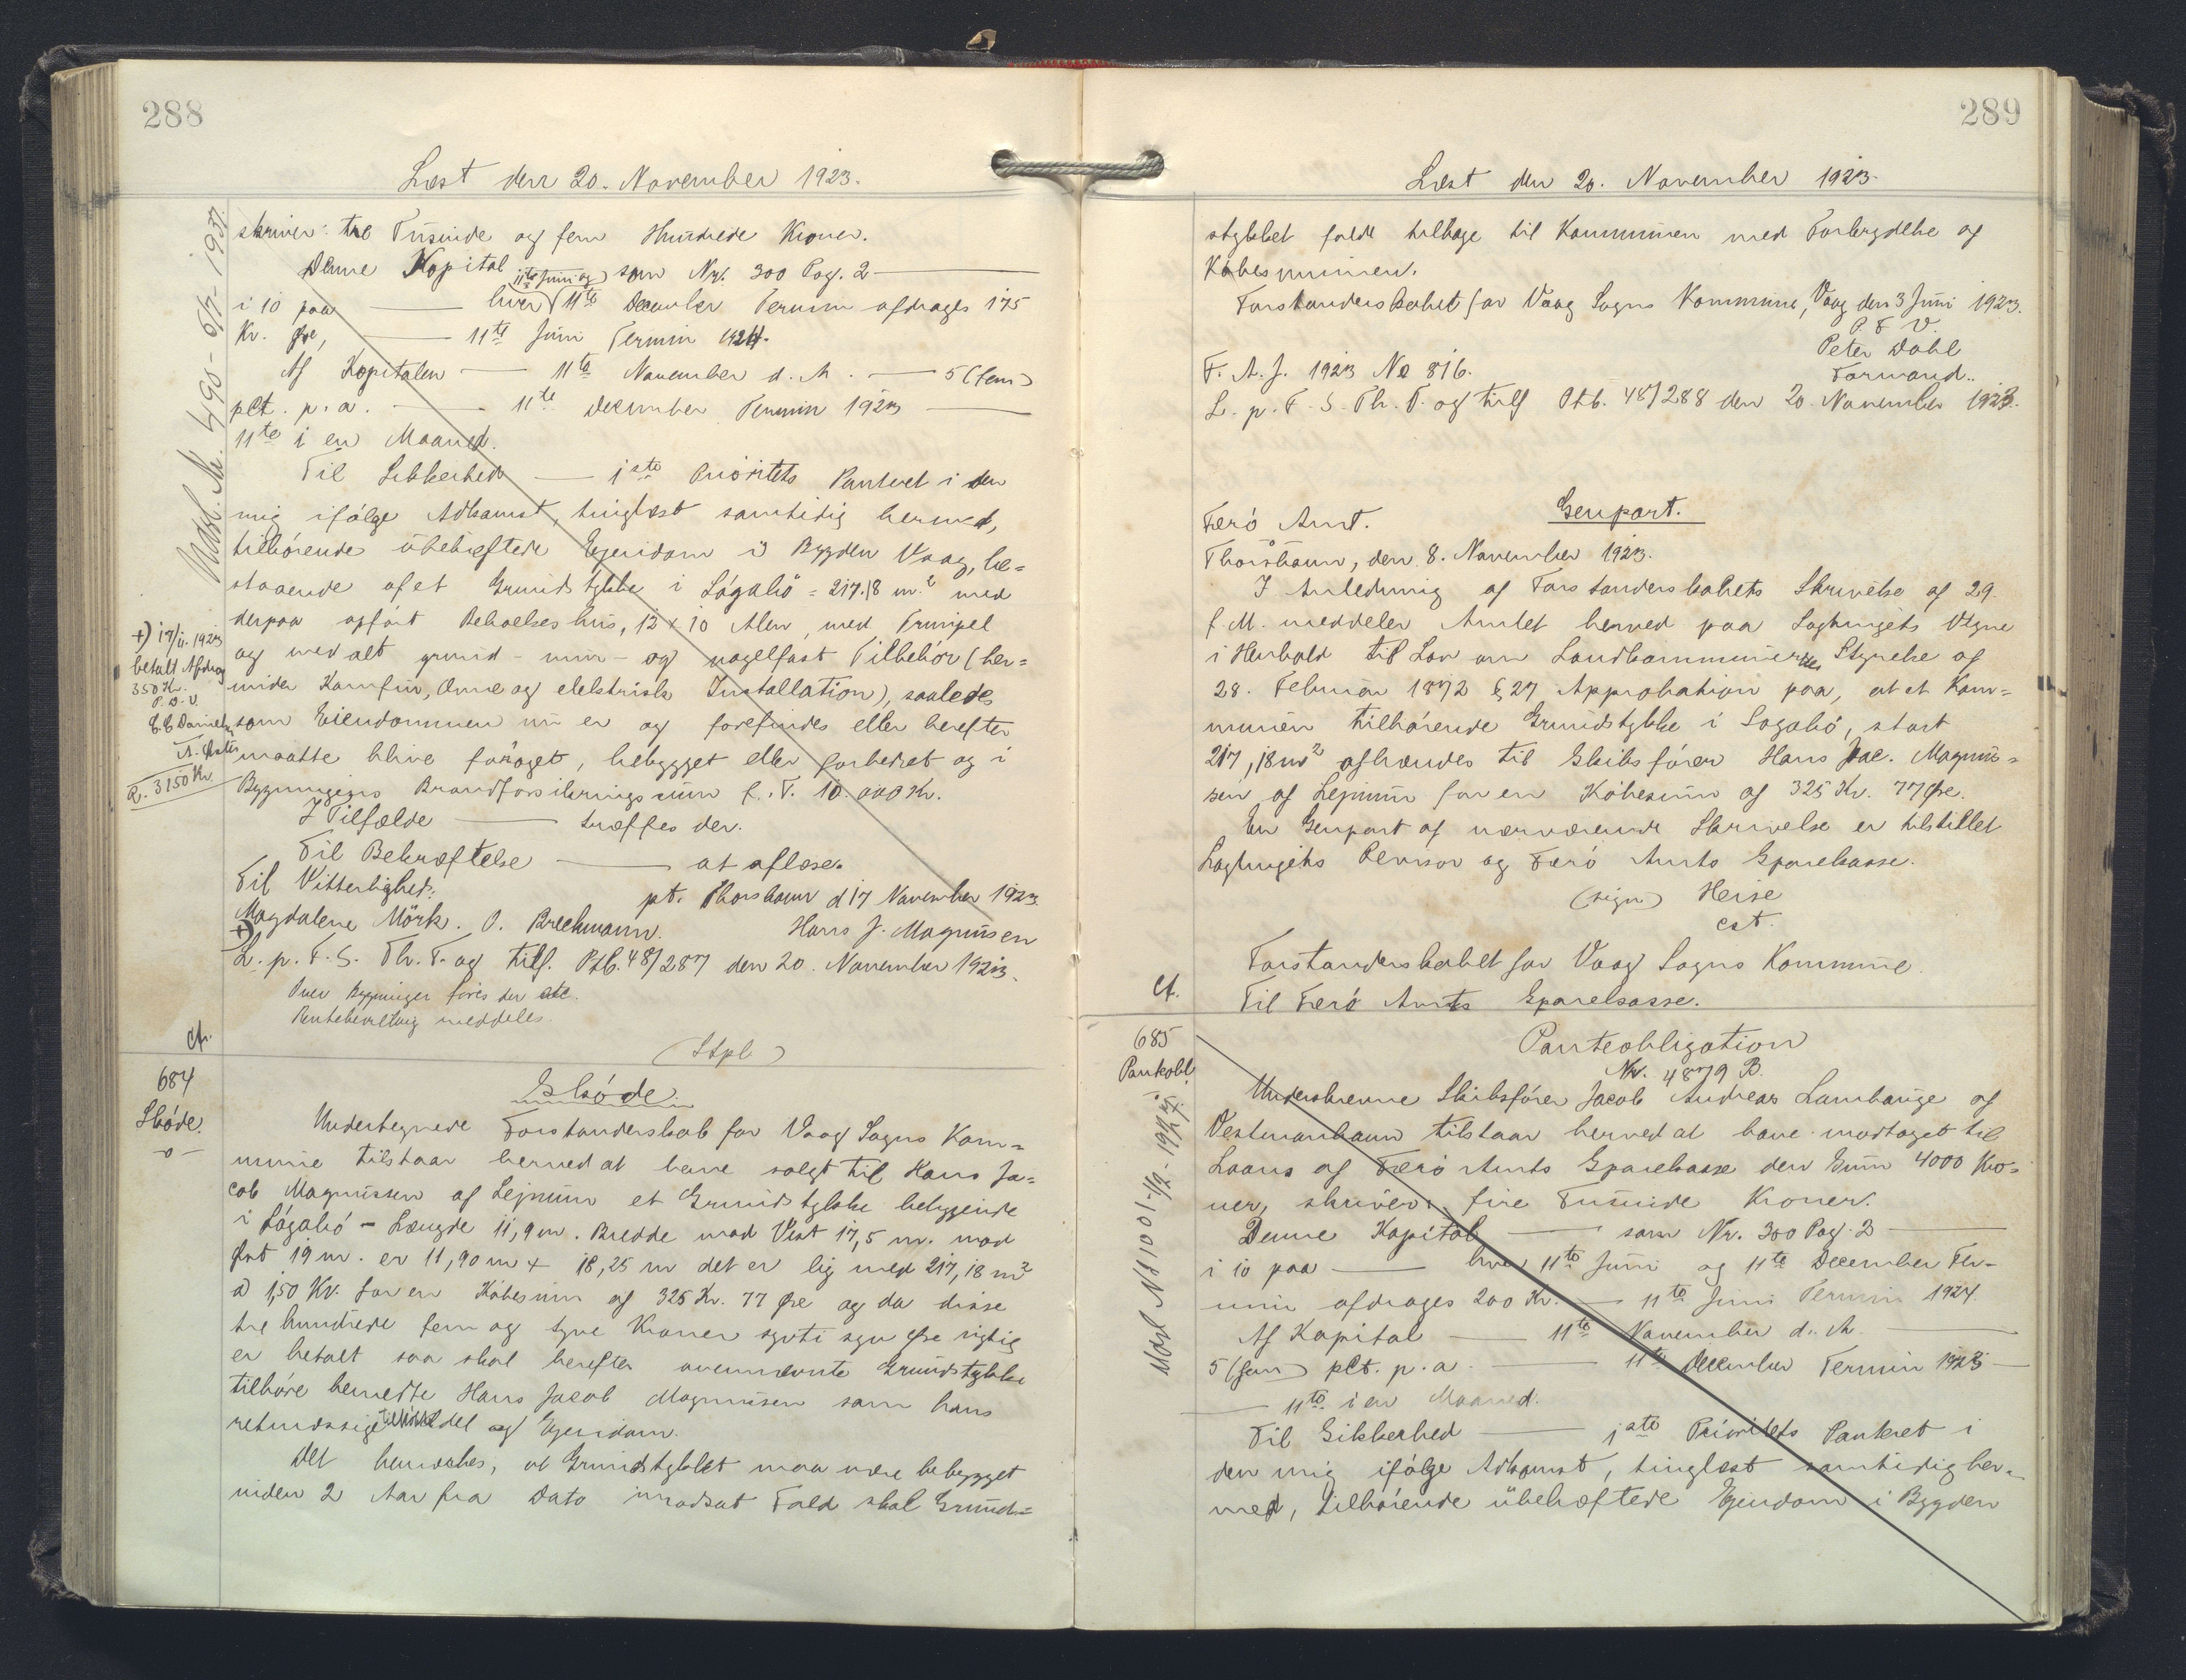 288
Læst den 20. November 1923.
skriver: tre Tusinde og fem Hundrede Kroner.
Denne Kapital 11te Juni og som Nr. 300 Pag. 2
i 10 paa hver 11te December Termin afdrages 175
Kr. Øre, 11te Juni Termin 1924.
Af Kapitalen 11te November d. A. 5 (fem)
pct. p. a. 11te December Termin 1923
11te i en Maaned.
Til Sikkerhed 1ste Prioritets Panteret i den
mig ifølge Adkomst, tinglæst samtidig hermed,
tilhørende ubehæftede Ejendom i Bygden Vaag, be=
staaende af et Grundstykke i Lógabó = 217.18 m² med
derpaa opført Beboelseshus, 12 x 10 Alen, med Trumpel
og med alt grund- mur- og nagelfast Tilbehør (her=
under Komfur, Ovne og elektrisk Installation), saaledes
som Eiendommen nu er og forefindes eller herefter
maatte blive forøget, bebygget eller forbedret og i
Bygningens Brandforsikringssum f. T. 10.000 Kr.
I Tilfælde træffes der.
Til Bekræftelse at aflæse.
Til Vitterlighed: pt. Thorshavn d 17 November 1923.
Magdalene Mörk. O. Brechmann. Hans J. Magnussen
+) L. p. F. S. Th. T. og tilf. Ptb. 48/287 den 20. November 1923.
Over Bygninger føres der etc.
Rentebevilling meddeles.
(Stpl)
Udsl. Nr. 498-5/7-1937.
+) 17/11.1923
betalt Afdrag
350 Kr.
P. S. V.
R. 3150 Kr.
cf.
684
Skóde.
-o-
Skóde.
Undertegnede Forstanderskab for Vaag Sogns Kom=
mune tilstaar herved at have solgt til Hans Ja=
cob Magnussen af Lejnum et Grundstykke beliggende
i Lógabó - Længde 11,9 m. Bredde mod Vest 17,5 m. mod
Øst 19 m. er 11,90 m + 18,25 m det er lig med 217,18 m²
a 1,50 Kr. for en Købesum af 325 Kr. 77 Øre og da disse
tre hundrede fem og tyve Kroner syvti syv Øre rigtig
er betalt saa skal herefter ovennævnte Grundstykke
tilhøre bemeldte Hans Jacob Magnussen som hans
retmæssige Odel og Ejendom.
Det bemærkes, at Grundstykket maa være bebygget
inden 2 Aar fra Dato modsat Fald skal Grund=
289
Læst den 20. November 1923.
stykket falde tilbage til Kommunen med Forbrydelse af
Købesummen.
Forstanderskabet for Vaag Sogns Kommune, Vaag den 3 Juni 1923.
P. F. V.
Peter Dahl
Formand.
F. A. J. 1923 No 816.
L. p. F. S. Th. T. og tilf Ptb. 48/288 den 20. November 1923.
Genpart.
Færó Amt.
Thorshavn, den 8. November 1923.
I Anledning af Forstanderskabets Skrivelse af 29.
f. M. meddeler Amtet herved paa Lagtingets Vegne
i Henhold til Lov om Landkommunernes Styrelse af
28. Februar 1872 § 27 Approbation paa, at et Kom=
munen tilhørende Grundstykke i Logabó, stort
217,18 m² afhændes til Skibsfører Hans Jac. Magnus=
sen af Lejnum for en Købesum af 325 Kr. 77 Øre.
En Genpart af nærværende Skrivelse er tilstillet
Lagtingets Revisor og Færó Amts Sparekasse.
(sign) Heise
cst.
Forstanderskabet for Vaag Sogns Kommune.
cf.
Til Færó Amts Sparekasse.
685
Pantobl.
Udsl No 1001-1/12-1942.
Panteobligation
Nr. 4879 B.
Underskrevne Skibsfører Jacob Andreas Lamhauge af
Vestmanhavn tilstaar herved at have modtaget til
Laans af Færó Amts Sparekasse den Sum 4000 Kro=
ner, skriver fire Tusinde Kroner.
Denne Kapital som Nr. 300 Pag. 2
i 10 paa hver 11te Juni og 11te December Ter-
min afdrages 200 Kr. 11te Juni Termin 1924.
Af Kapital 11te November d. A.
5 (fem) pct. p. a. 11te December Termin 1923
11te i en Maaned.
Til Sikkerhed 1ste Prioritets Panteret i
den mig ifølge Adkomst, tinglæst samtidig her=
med, tilhørende ubehæftede Ejendom i Bygden